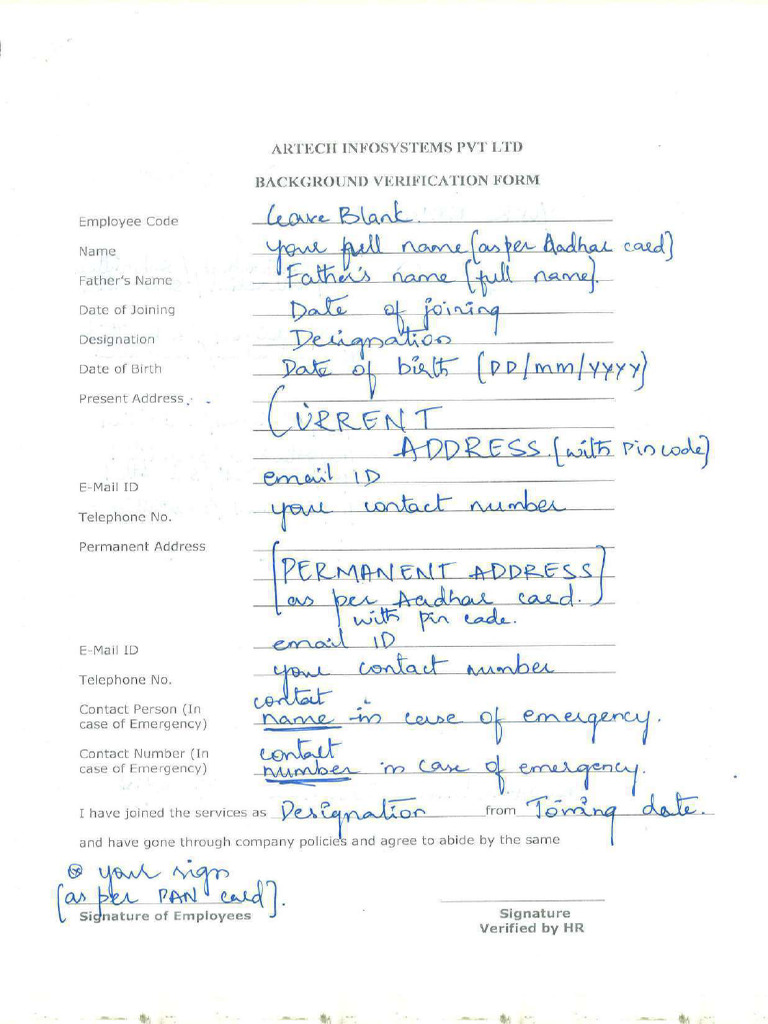 ARTECH INFOSYSTEMS PVT LTD
BACKGROUND VERIFICATION FORM
Employee Code Leave Blank.
Name your full name [as per Aadhar card]
Father's Name Father's name [full name].
Date of Joining Date of joining
Designation Designation
Date of Birth Date of birth (DD/mm/yyyy)
Present Address. CURRENT
ADDRESS. [with pin code]
E-Mail ID email ID
Telephone No. your contact number
Permanent Address
[PERMANENT ADDRESS]
as per Aadhar card.
with pin code.
E-Mail ID email ID
Telephone No. your contact number
Contact Person (In contact
case of Emergency) name in case of emergency.
Contact Number (In contact
case of Emergency) number in case of emergency.
I have joined the services as Designation from Joining date.
and have gone through company policies and agree to abide by the same
your sign
[as per PAN card].
Signature of Employees
Signature
Verified by HR